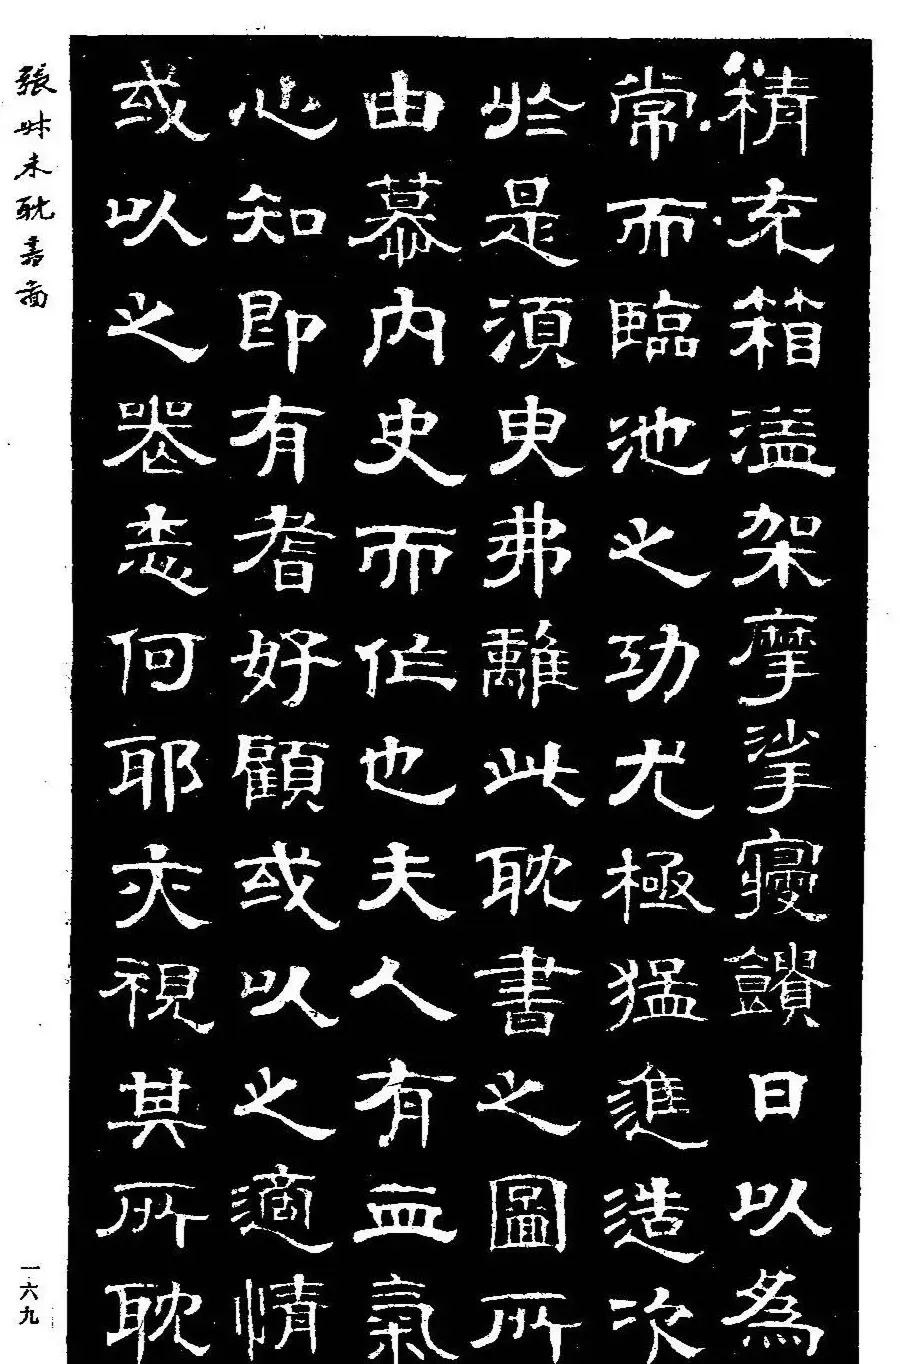 精充箱溢架摩挲寢饋日以為
常而臨池之功尤極猛進造次
於是須臾弗離此耽書之圖所
由慕內史而作也夫人有血氣
心知即有耆好顧或以之適情
或以之喪志何耶亦視其所耽
張叔未耽書圖
一六九